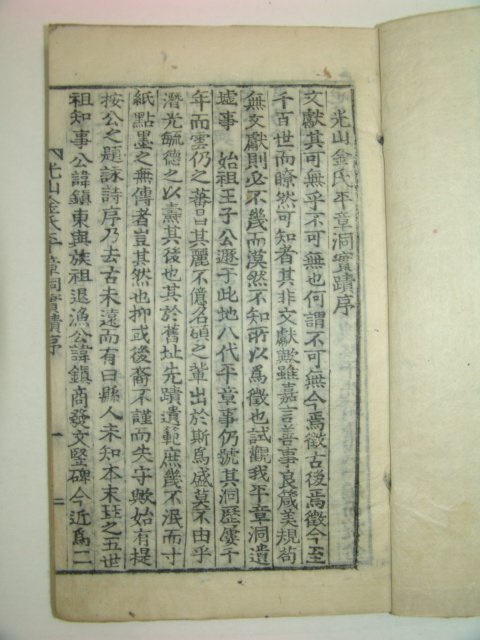 光山金氏平章洞實蹟序
文獻其可無乎不可無也何謂不可無今焉徵古後焉徵今至
千百世而瞭然可知者其非文獻歟雖嘉言善事良箴美規苟
無文獻則必不幾而漠然不知所以爲徵也試觀我平章洞遺
墟事 始祖王子公遯于此地八代平章事仍號其洞歷屢千
年而雲仍之蕃昌其麗不億名碩之輩出於斯爲盛莫不由乎
潛光毓德之以燾其後也其於舊址先蹟遺範庶幾不泯而寸
紙點墨之無傳者豈其然也抑或後裔不謹而失守歟始有提
按公之題詠詩序乃去古未遠而有曰縣人未知本末
之五世
祖知事公諱鎭東與族祖退漁公諱鎭商發文竪碑今近爲二
光山金氏平章洞實蹟序 一